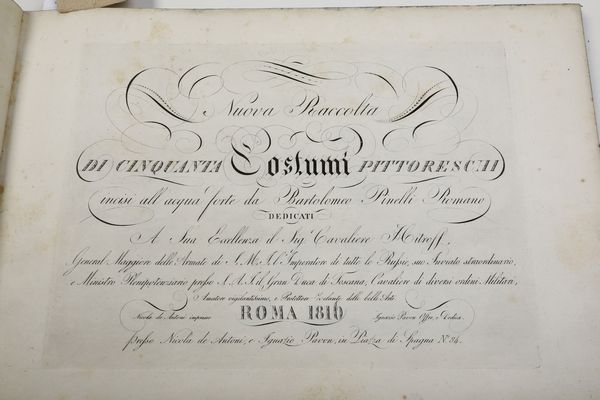 Nuova Raccolta
DI CINQUANTA Costumi PITTORESCHI
incisi all'acqua forte da Bartolomeo Pinelli Romano
DEDICATI
A Sua Excellenza il Sig. Cavaliere Hitroff,
General Maggiore delle Armate di S. M. I. l'Imperatore di tutte le Russie, suo Inviato straordinario,
e Ministro Plenipotenziario presso S. A. I. il Gran Duca di Toscana, Cavaliere di diversi ordini Militari,
Amatore vigilantissimo, e Protettore delle bell'Arti
Nicola de Antoni impresse ROMA 1816 Ignazio Pavon Offre, e Dedica
presso Nicola de Antoni, e Ignazio Pavon, in Piazza di Spagna N.° 84.